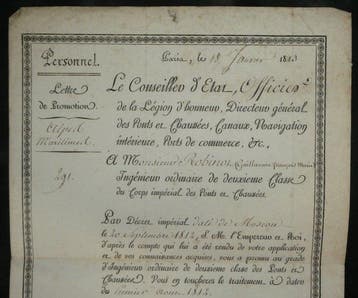 Personnel.
Lettre
de Promotion
Paris, le 18 Janvier 1813
Le Conseiller d'Etat, Officier
de la Légion d'honneur, Directeur général
des Ponts et Chaussées, Canaux, Navigation
intérieure, Ports de commerce, &c,
A Monsieur Robinot, Guillaume François Marie
Ingénieur ordinaire de deuxième Classe
du Corps impérial des Ponts et Chaussées
Par Décret impérial daté de Moscou
le 20 Septembre 1812, S. M. l'Empereur et Roi,
d'après le compte qui lui a été rendu de votre application
et de vos connaissances acquises, vous a promu au grade
d'Ingénieur ordinaire de deuxième classe des Ponts et
Chaussées. Vous en toucherez le traitement à dater
du premier 1812.